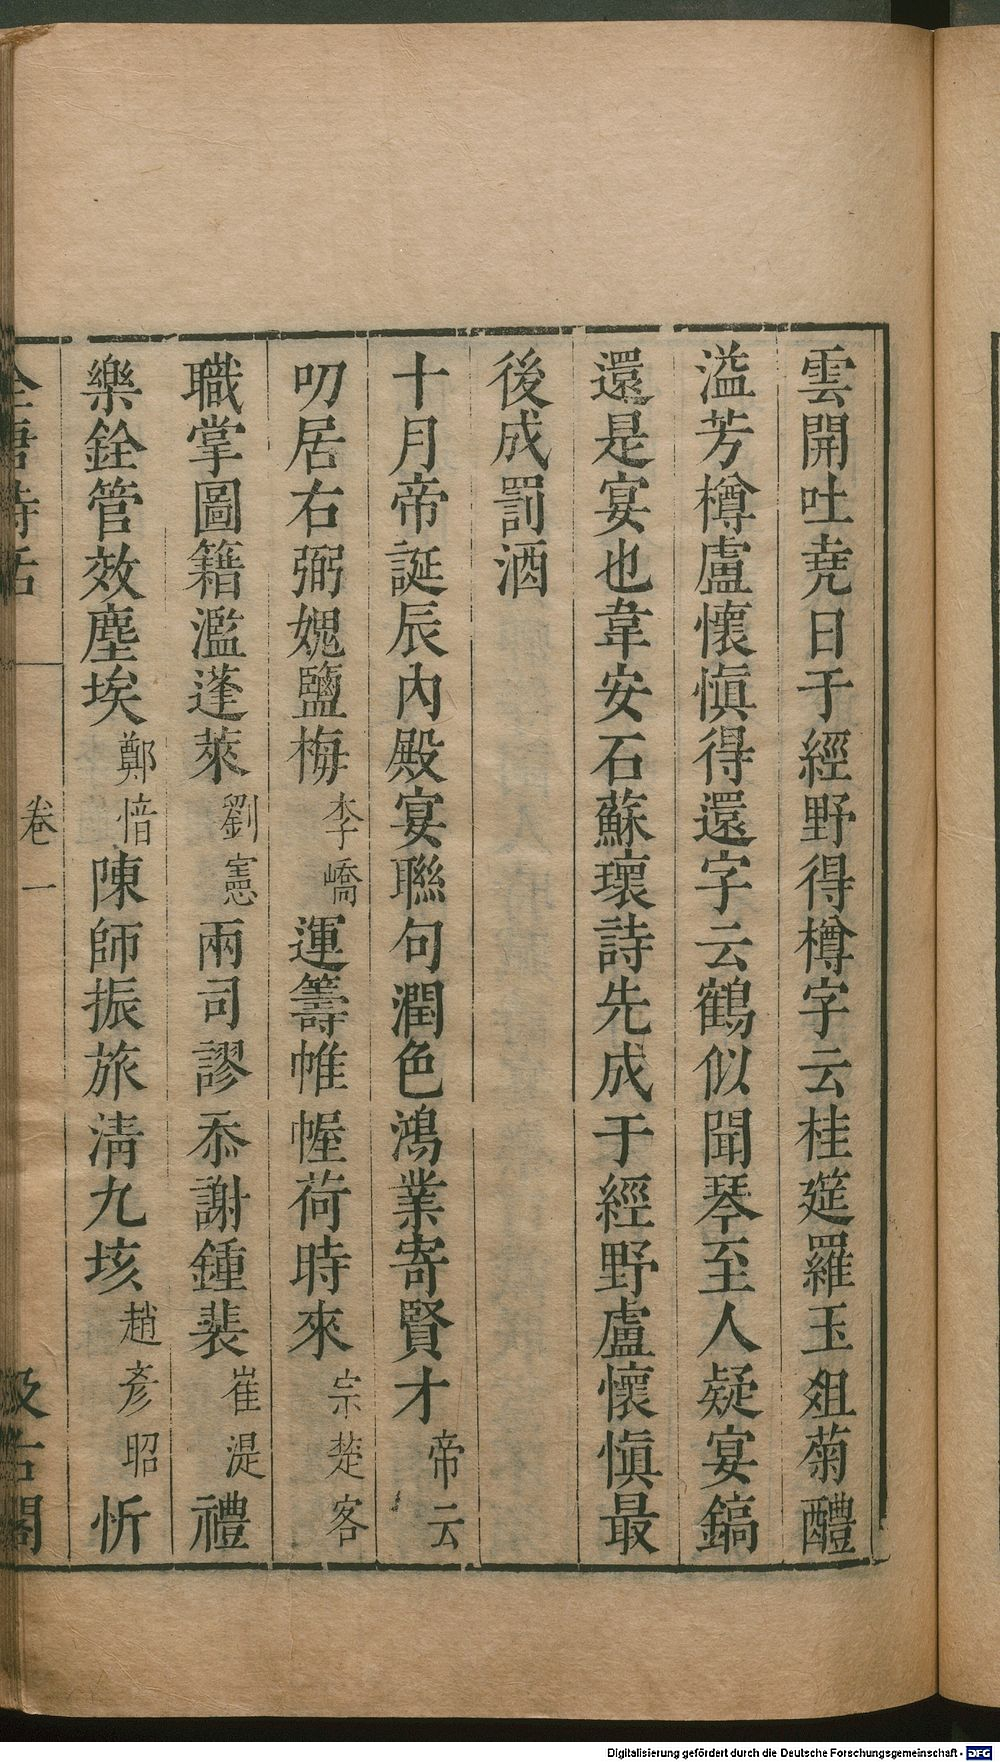 雲開吐堯日于經野得樽字云桂筵羅玉俎菊醴
溢芳樽盧懷愼得還字云鶴似聞琴至人疑宴鎬
還是宴也韋安石蘇瓌詩先成于經野盧懷愼最
後成罰酒
十月帝誕辰內殿宴聯句潤色鴻業寄賢才帝云
叨居右弼媿鹽梅李嶠運籌帷幄荷時來宗楚客
職掌圖籍濫蓬萊劉憲兩司謬忝謝鍾裴崔湜禮
樂銓管效塵埃鄭愔陳師振旅淸九垓趙彥昭忻
全唐詩話 卷一 汲古閣
Digitalisierung gefördert durch die Deutsche Forschungsgemeinschaft - DFG